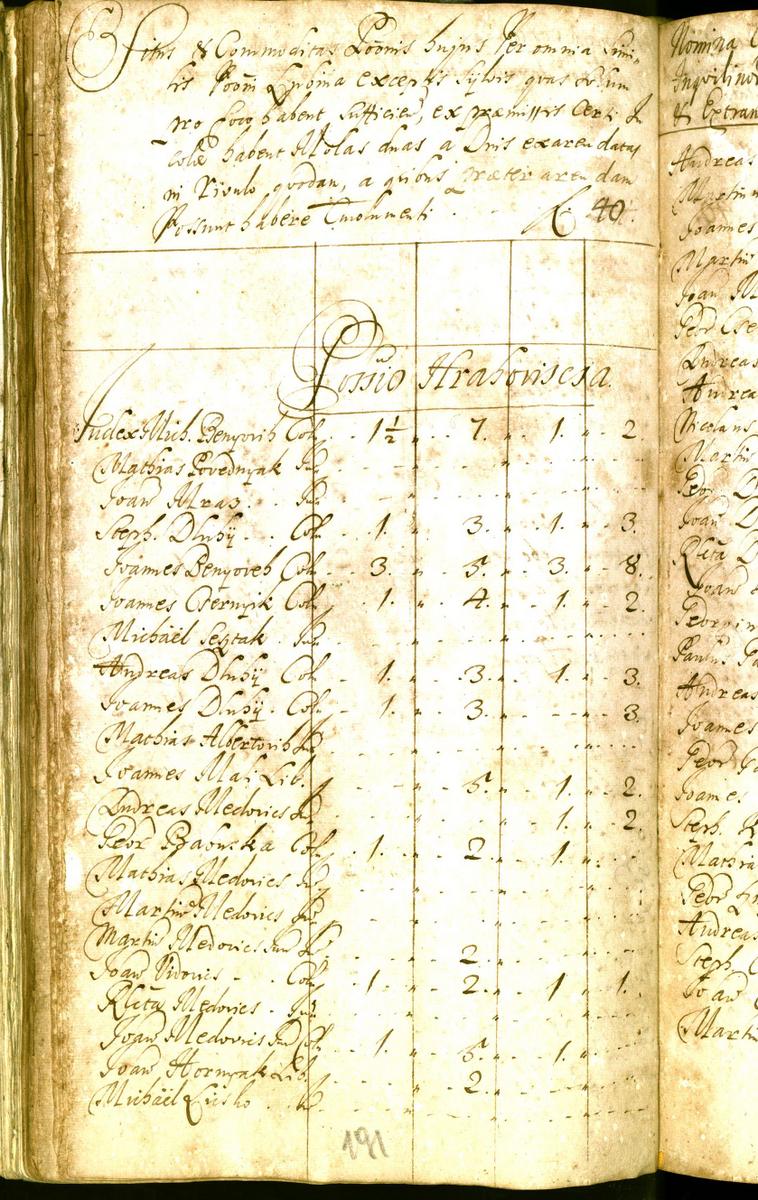 Situs & Commoditas Poônis hujus per omnia simi-
lis Poôni exceptis sylvis quas
pro foco habent sufficien, ex præmissis Certi In
colæ habent Molas duas a Dnis exarendatas
in rivulo quodam, a quibus præter arendam
Possunt habere Emolumenti . . f. 40.
Possio Hrahoviscsa.
Judex Mich. Benyovih Col. . 1½ „ . 7. „ . 1. „ . 2.
Mathias Povednyak In
Joan Mraz . . In
Steph. Dluhÿ . . Col. . 1. „ . 3. „ . 1. „ . 3.
Joannes Benyoveh Col. . 3. „ . 5. „ . 3. „ . 8.
Joannes Csernyik Col. . 1. „ . 4. „ . 1. „ . 2
Michäel Sesztak . In
Andreas Dluhÿ Col. . 1. „ . 3. „ . 1. „ . 3.
Joannes Dluhÿ . Col. . 1. „ . 3. „ . . „ . 3.
Mathias Albertovih In
Joannes Mali Lib. . . „ . 5. „ . 1. „ . 2.
Andreas Medovics In . . . 1. „ . 2.
Petr Col. . 1. „ . 2 „ . 1. „
Mathias Medovics In
Martin Medovics In
Martin Medovics Jun . . 2. „
Joan Vidovis . . Col. . 1 „ . 2. „ . 1 „ . 1.
Rlcta Medovics . In
Joan Medovics Col. . 1. „ . 5. „ . 1. „
Joan Hornyak Lib. . . 2. „
Michäel . . In
191
Nomina
Inqvilinor
& Extran
Andreas
Martin
Joannes
Martin
Joan M
Petr Cse
Andreas
Andrea
Nicolaus
Martin
Petr D
Joan D
Rlcta D
Joan
Petr
Paulus
Andreas
Joannes
Petr
Joannes
Steph.
Mathia
Petr
Andreas
Steph
Joan
Martin